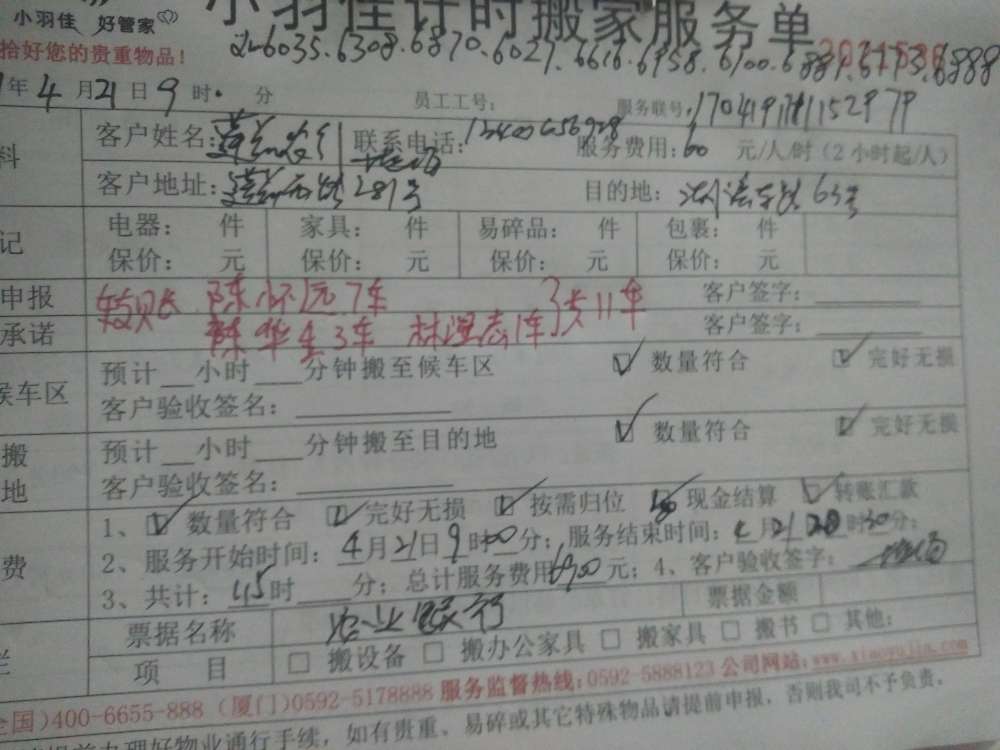 小羽佳 好管家
小羽佳计时搬家服务单
拾好您的贵重物品！
6035.6308.6870.6027.6616.6958.6100.6889.6173.6888
年4月21日9时 分 员工工号： 服务联号：
客户姓名： 联系电话： 服务费用：60 元/人/时（2小时起/人）
客户地址： 281号 目的地： 63号
电器： 件 家具： 件 易碎品： 件 包裹： 件
保价： 元 保价： 元 保价： 元 保价： 元
申报 陈怀远7车 共11车 客户签字：
承诺 陈华生3车 林煜志1车 客户签字：
候车区 预计 小时 分钟搬至候车区 数量符合 完好无损
客户验收签名：
搬 预计 小时 分钟搬至目的地 数量符合 完好无损
地 客户验收签名：
费 1、数量符合 完好无损 按需归位 现金结算 转账汇款
2、服务开始时间：4月21日9时00分；服务结束时间：4月21日20时30分；
3、共计：115时 分；总计服务费用6900元；4、客户验收签字：
票据名称 农业银行 票据金额
项 目 搬设备 搬办公家具 搬家具 搬书 其他：
全国)400-6655-888 (厦门)0592-5178888 服务监督热线：0592-5888123 公司网站：www.xiaoyujia.com
办理好物业通行手续，如有贵重、易碎或其它特殊物品请提前申报，否则我司不予负责。